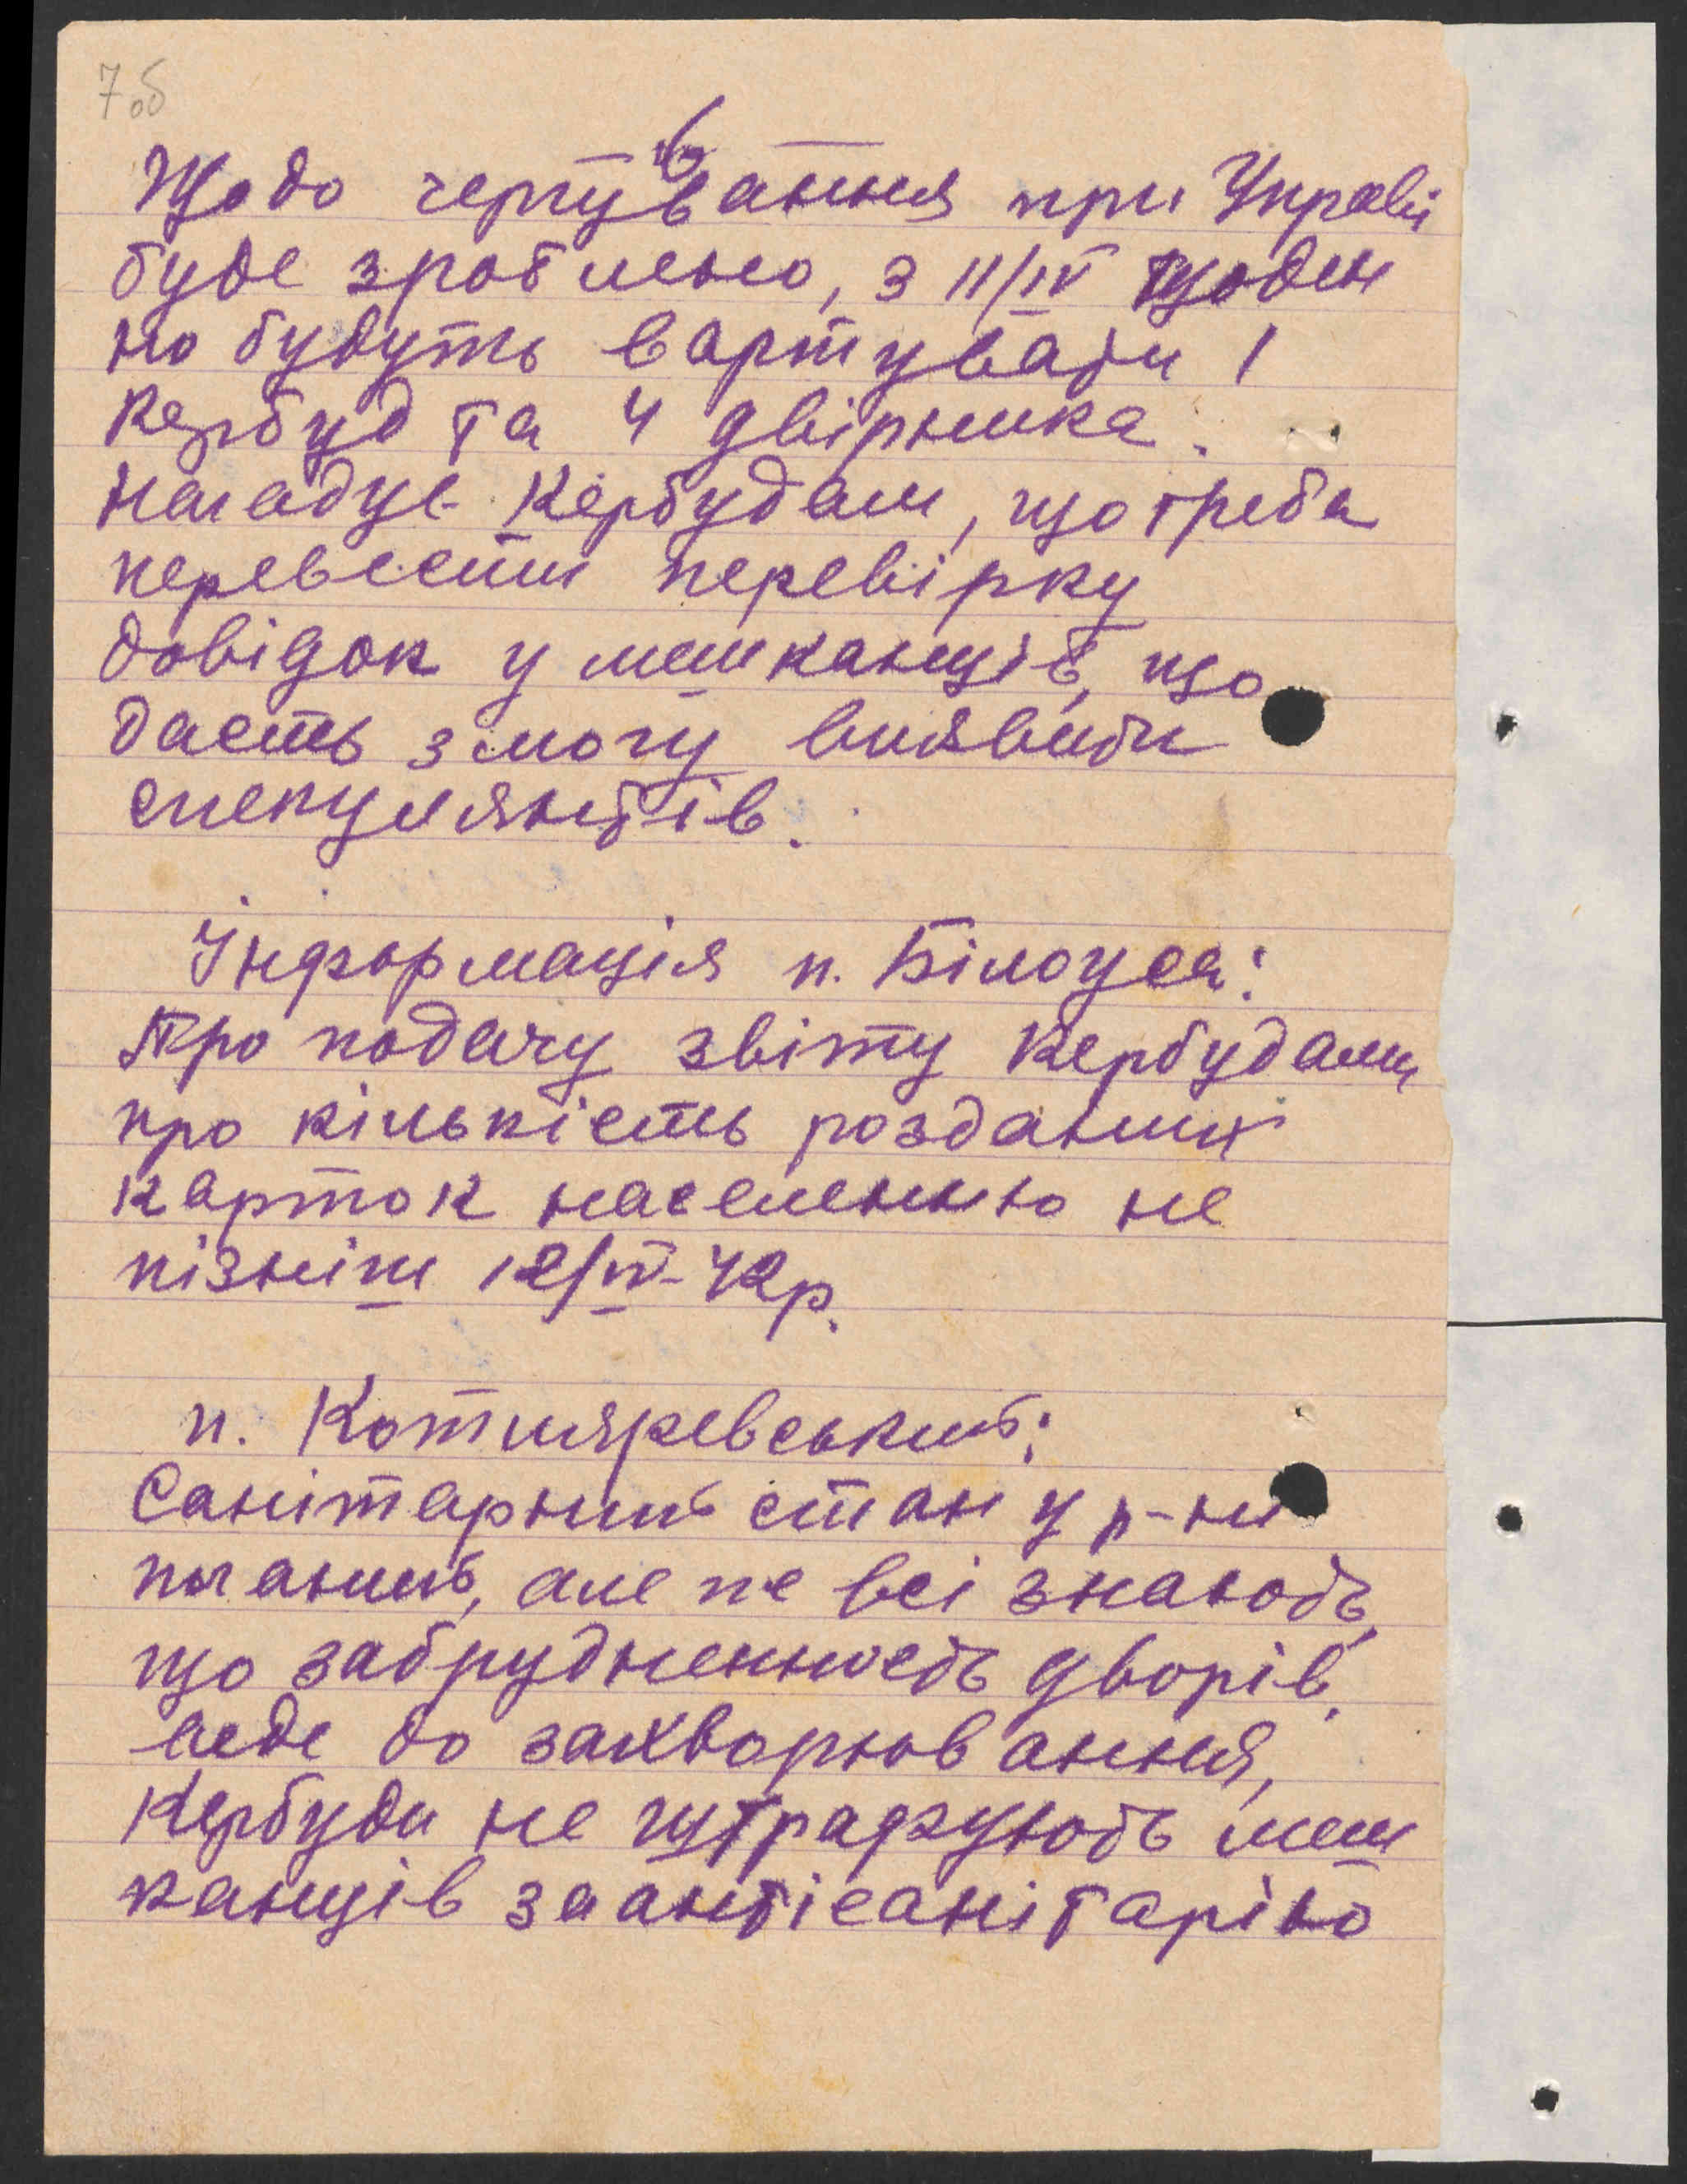 7об
Щодо чергування при Управі
буде зроблено, з 11/IV щоден
но будуть вартувати 1
Кербуд та 4 двірника.
Нагадує Кербудам, що треба
перевести перевірку
довідок у мешканців, що
дасть змогу виявити
спекулянтів.
Інформація п. Білоуса:
Про подачу звіту Кербудами
про кількість розданих
карток населенню не
пізніш 12/IV-42р.
п. Котляревський:
Санітарний стан у р-ні
поганий, але не всі знають,
що забрудненність дворів,
веде до захворювання,
Кербуди не штрафують меш
канців за антісанітарію